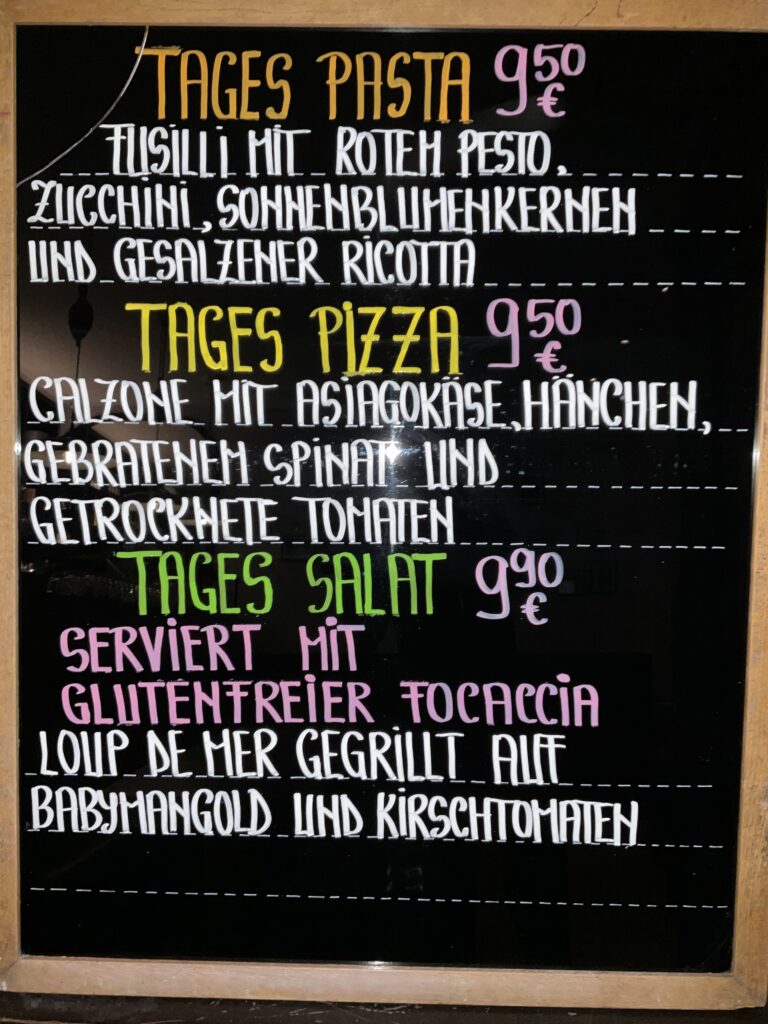 TAGES PASTA 9 50 €
FUSILLI MIT ROTEM PESTO,
ZUCCHINI, SONNENBLUMENKERNEN
UND GESALZENER RICOTTA
TAGES PIZZA 9 50 €
CALZONE MIT ASIAGOKÄSE, HÄNCHEN,
GEBRATENEM SPINAT UND
GETROCKNETE TOMATEN
TAGES SALAT 9 90 €
SERVIERT MIT
GLUTENFREIER FOCACCIA
LOUP DE MER GEGRILLT AUF
BABYMANGOLD UND KIRSCHTOMATEN